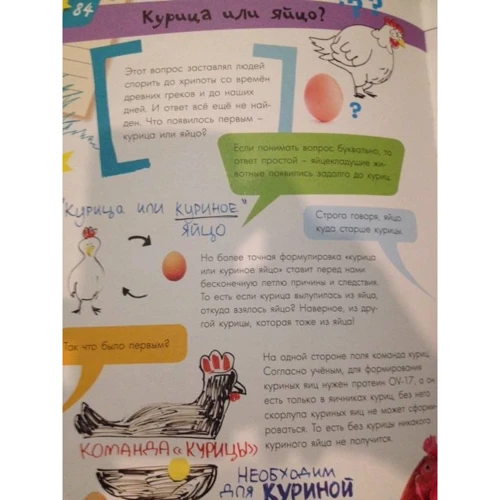 84
Курица или яйцо?
Этот вопрос заставлял людей
спорить до хрипоты со времён
древних греков и до наших
дней. И ответ всё ещё не най-
ден. Что появилось первым –
курица или яйцо?
Если понимать вопрос буквально, то
ответ простой – яйцекладущие жи-
вотные появились задолго до куриц.
"Курица или куриное"
яйцо
Строго говоря, яйцо
куда старше курицы.
Но более точная формулировка «курица
или куриное яйцо» ставит перед нами
бесконечную петлю причины и следствия.
То есть если курица вылупилась из яйца,
откуда взялось яйцо? Наверное, из дру-
гой курицы, которая тоже из яйца!
Так что было первым?
На одной стороне поля команда куриц.
Согласно учёным, для формирования
куриных яиц нужен протеин OV-17, а он
есть только в яичниках куриц, без него
скорлупа куриных яиц не может сформи-
роваться. То есть без курицы никакого
куриного яйца не получится.
КОМАНДА «КУРИЦЫ»
НЕОБХОДИМ
ДЛЯ КУРИНОЙ